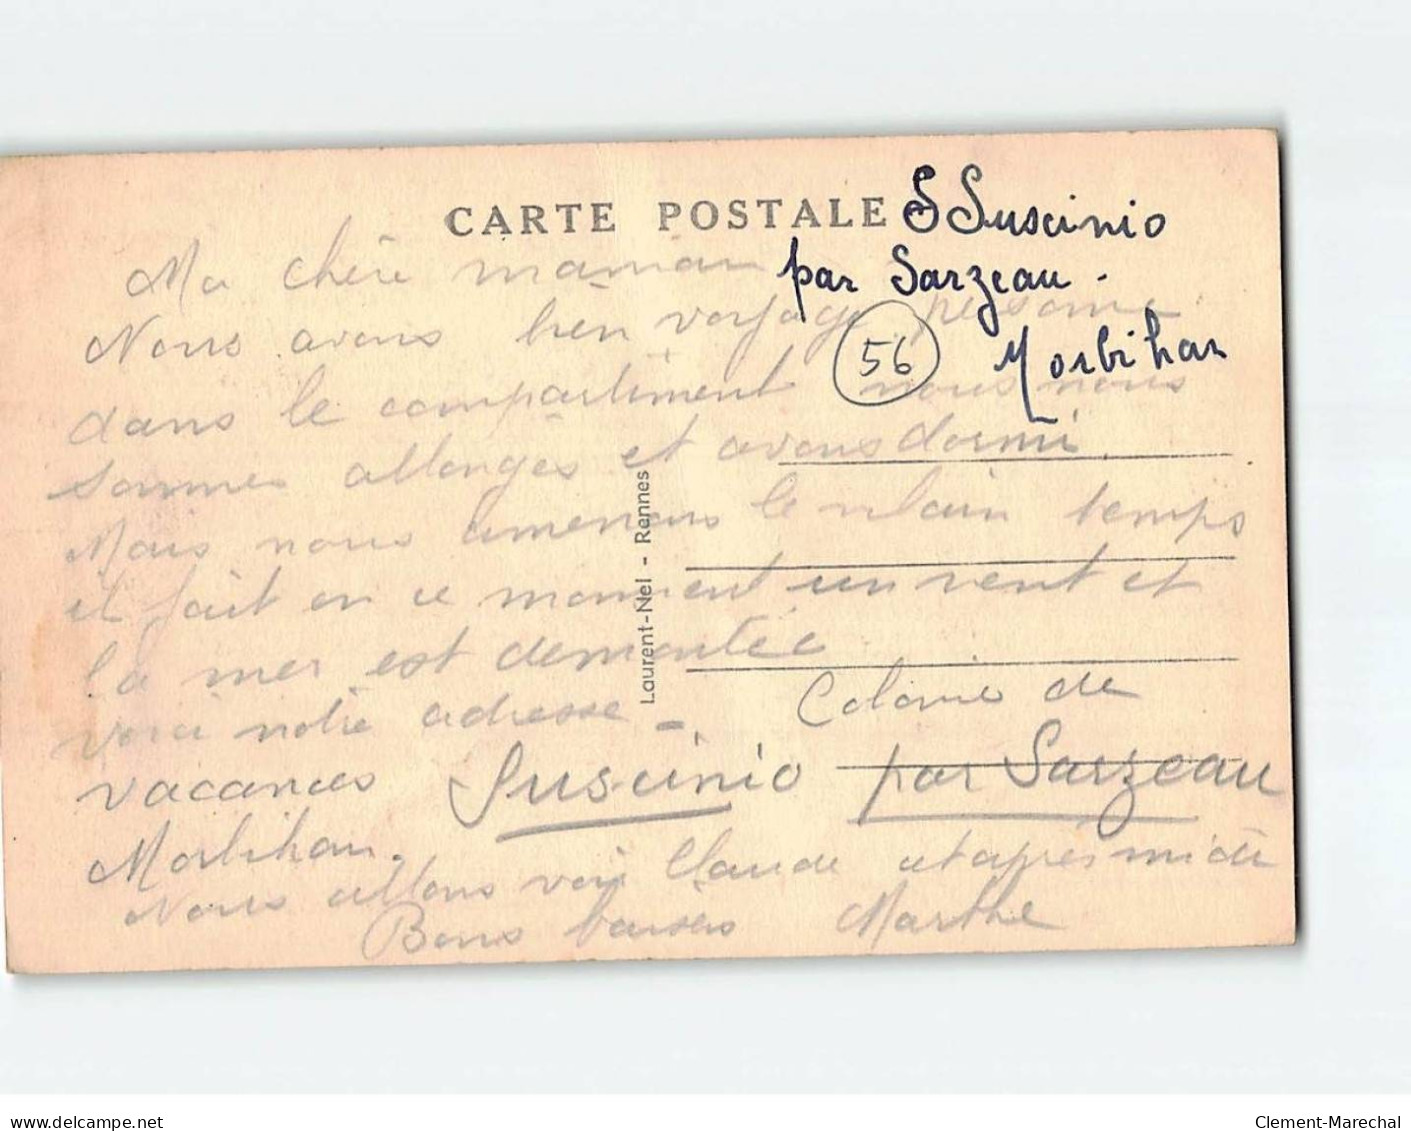 CARTE POSTALE
S Suscinio
par Sarzeau.
Morbihan
56
Ma chère maman
Nous avons bien voyagé personne
dans le compartiment nous nous
sommes allongés et avons dormi.
Mais nous amenons le vilain temps
il fait en ce moment un vent et
la mer est demontée
voici notre adresse - Colonie de
vacances Suscinio par Sarzeau
Morbihan.
Nous allons voir Claude apres midi
Bons baisers Marthe
Laurent-Nel - Rennes
delcampe.net
Clement-Marechal